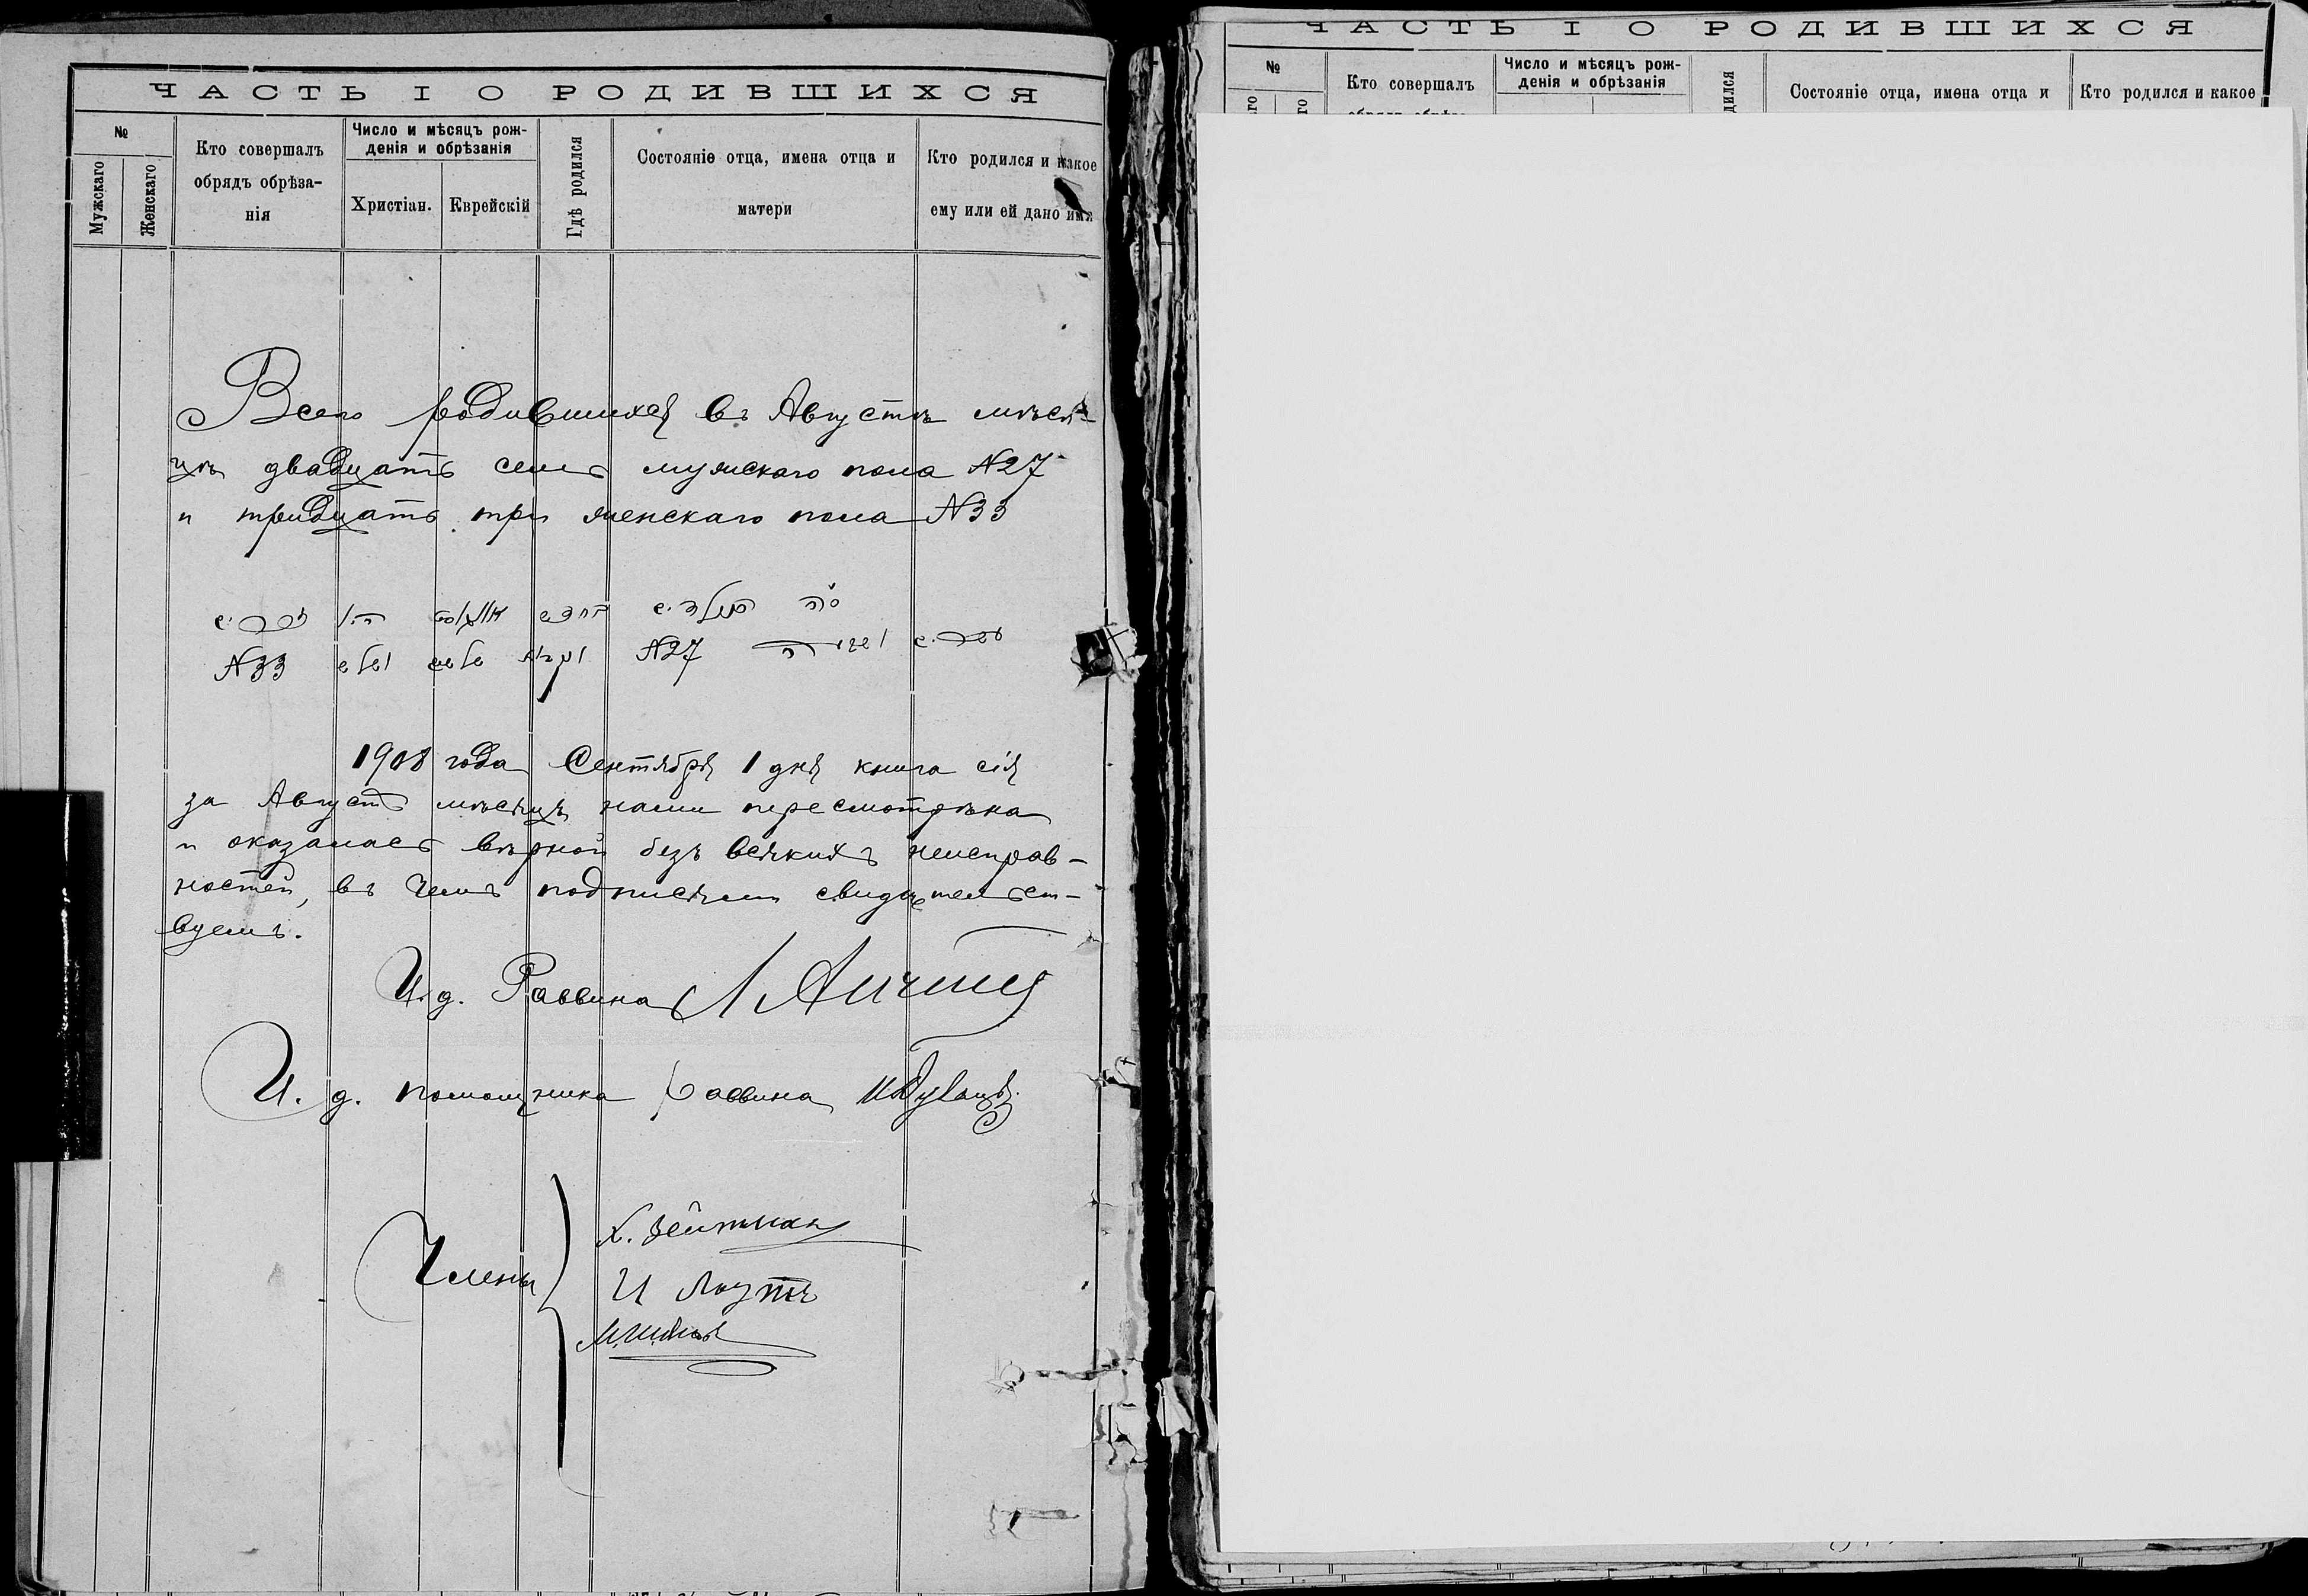 ЧАСТЬ I О РОДИВШИХСЯ
№
Мужскаго
Женскаго
Кто совершалъ
обрядъ обрѣза-
нія
Число и мѣсяцъ рож-
денія и обрѣзанія
Христіан.
Еврейскій
Гдѣ родился
Состояніе отца, имена отца и
матери
Кто родился и какое
ему или ей дано имя
Всего родившихся въ Августѣ мѣся-
цѣ двадцать семь мужскаго пола N27
и тридцать три женскаго пола N33
סך הנולדים בחדש אויגוסט היו זכרים
N27 ונקבות N33
1908 года Сентября 1 дня книга сія
за Августъ мѣсяцъ нами пересмотрѣна
и оказалась вѣрной безъ всякихъ неисправ-
ностей, въ чемъ подписями свидѣтельст-
вуемъ.
И. д. Раввина
И. д. помощника раввина
Члены
Х. Вейтман
И
М.
ЧАСТЬ I О РОДИВШИХСЯ
№
Кто совершалъ
Число и мѣсяцъ рож-
денія и обрѣзанія
Состояніе отца, имена отца и
Кто родился и какое